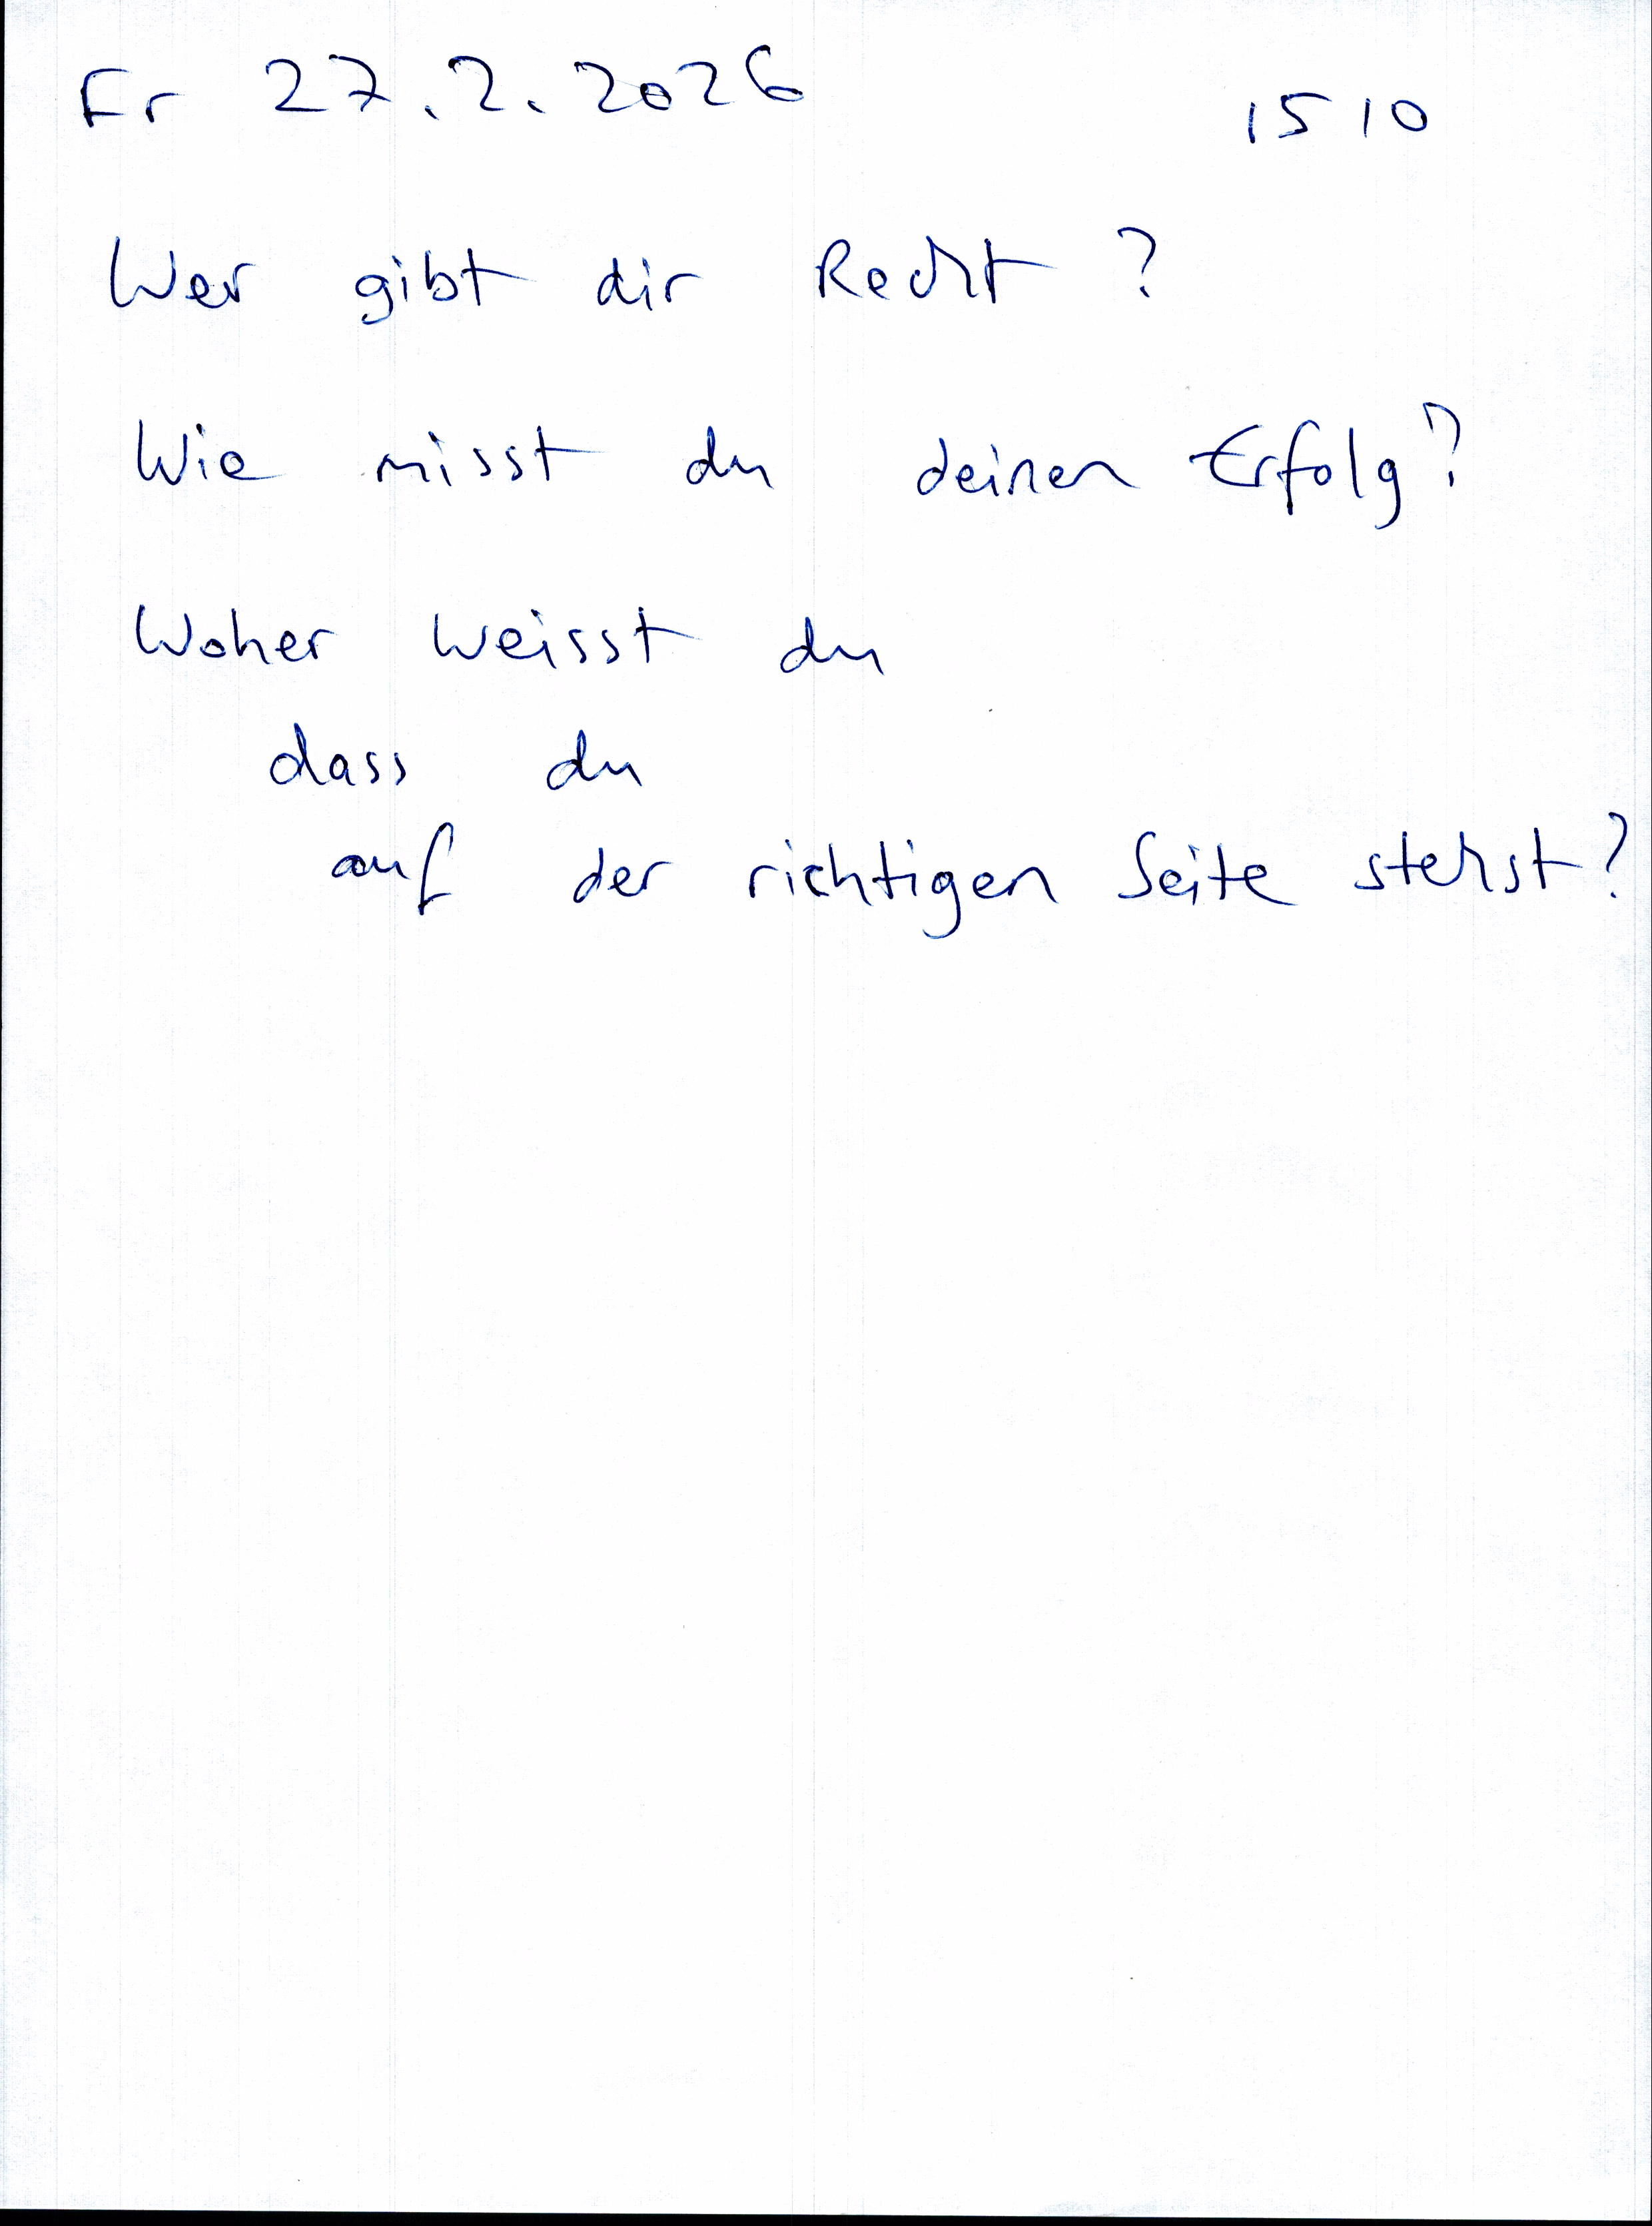 Fr 27.2.2026 1510
Wer gibt dir Recht?
Wie misst du deinen Erfolg?
Woher weisst du
dass du
auf der richtigen Seite stehst?